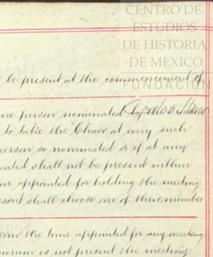 CENTRO DE
ESTUDIOS
DE HISTORIA
DE MÉXICO
FUNDACIÓN
be present at the commencement of
person nominated by
to take the Chair at every such
person so nominated or if at any
shall not be present within
appointed for holding the meeting
shall choose one of their number
the time appointed for any meeting
is not present the meeting